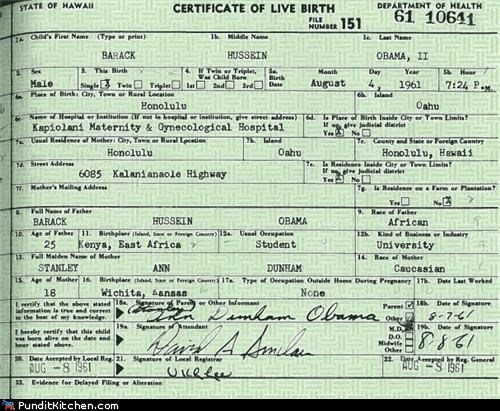 STATE OF HAWAII CERTIFICATE OF LIVE BIRTH DEPARTMENT OF HEALTH
FILE NUMBER 151 61 10641
1a. Child's First Name (Type or print) 1b. Middle Name 1c. Last Name
BARACK HUSSEIN OBAMA, II
2. Sex 3. This Birth 4. If Twin or Triplet, Was Child Born 5a. Birth Date Month Day Year 5b. Hour
Male Single X Twin Triplet 1st 2nd 3rd August 4, 1961 7:24 P.M.
6a. Place of Birth: City, Town or Rural Location 6b. Island
Honolulu Oahu
6c. Name of Hospital or Institution (If not in hospital or institution, give street address) 6d. Is Place of Birth Inside City or Town Limits? If no, give judicial district
Kapiolani Maternity & Gynecological Hospital Yes X No
7a. Usual Residence of Mother: City, Town or Rural Location 7b. Island 7c. County and State or Foreign Country
Honolulu Oahu Honolulu, Hawaii
7d. Street Address 7e. Is Residence Inside City or Town Limits? If no, give judicial district
6085 Kalanianaole Highway Yes X No
7f. Mother's Mailing Address 7g. Is Residence on a Farm or Plantation?
Yes No X
8. Full Name of Father 9. Race of Father
BARACK HUSSEIN OBAMA African
10. Age of Father 11. Birthplace (Island, State or Foreign Country) 12a. Usual Occupation 12b. Kind of Business or Industry
25 Kenya, East Africa Student University
13. Full Maiden Name of Mother 14. Race of Mother
STANLEY ANN DUNHAM Caucasian
15. Age of Mother 16. Birthplace (Island, State or Foreign Country) 17a. Type of Occupation Outside Home During Pregnancy 17b. Date Last Worked
18 Wichita, Kansas None
I certify that the above stated information is true and correct to the best of my knowledge. 18a. Signature of Parent or Other Informant Parent Other 18b. Date of Signature
(Stanley) Ann Dunham Obama 8-7-61
I hereby certify that this child was born alive on the date and hour stated above. 19a. Signature of Attendant M.D. D.O. Midwife Other 19b. Date of Signature
David A Sinclair 8-8-61
20. Date Accepted by Local Reg. 21. Signature of Local Registrar 22. Date Accepted by Reg. General
AUG -8 1961 U K L Lee AUG -8 1961
23. Evidence for Delayed Filing or Alteration
PunditKitchen.com